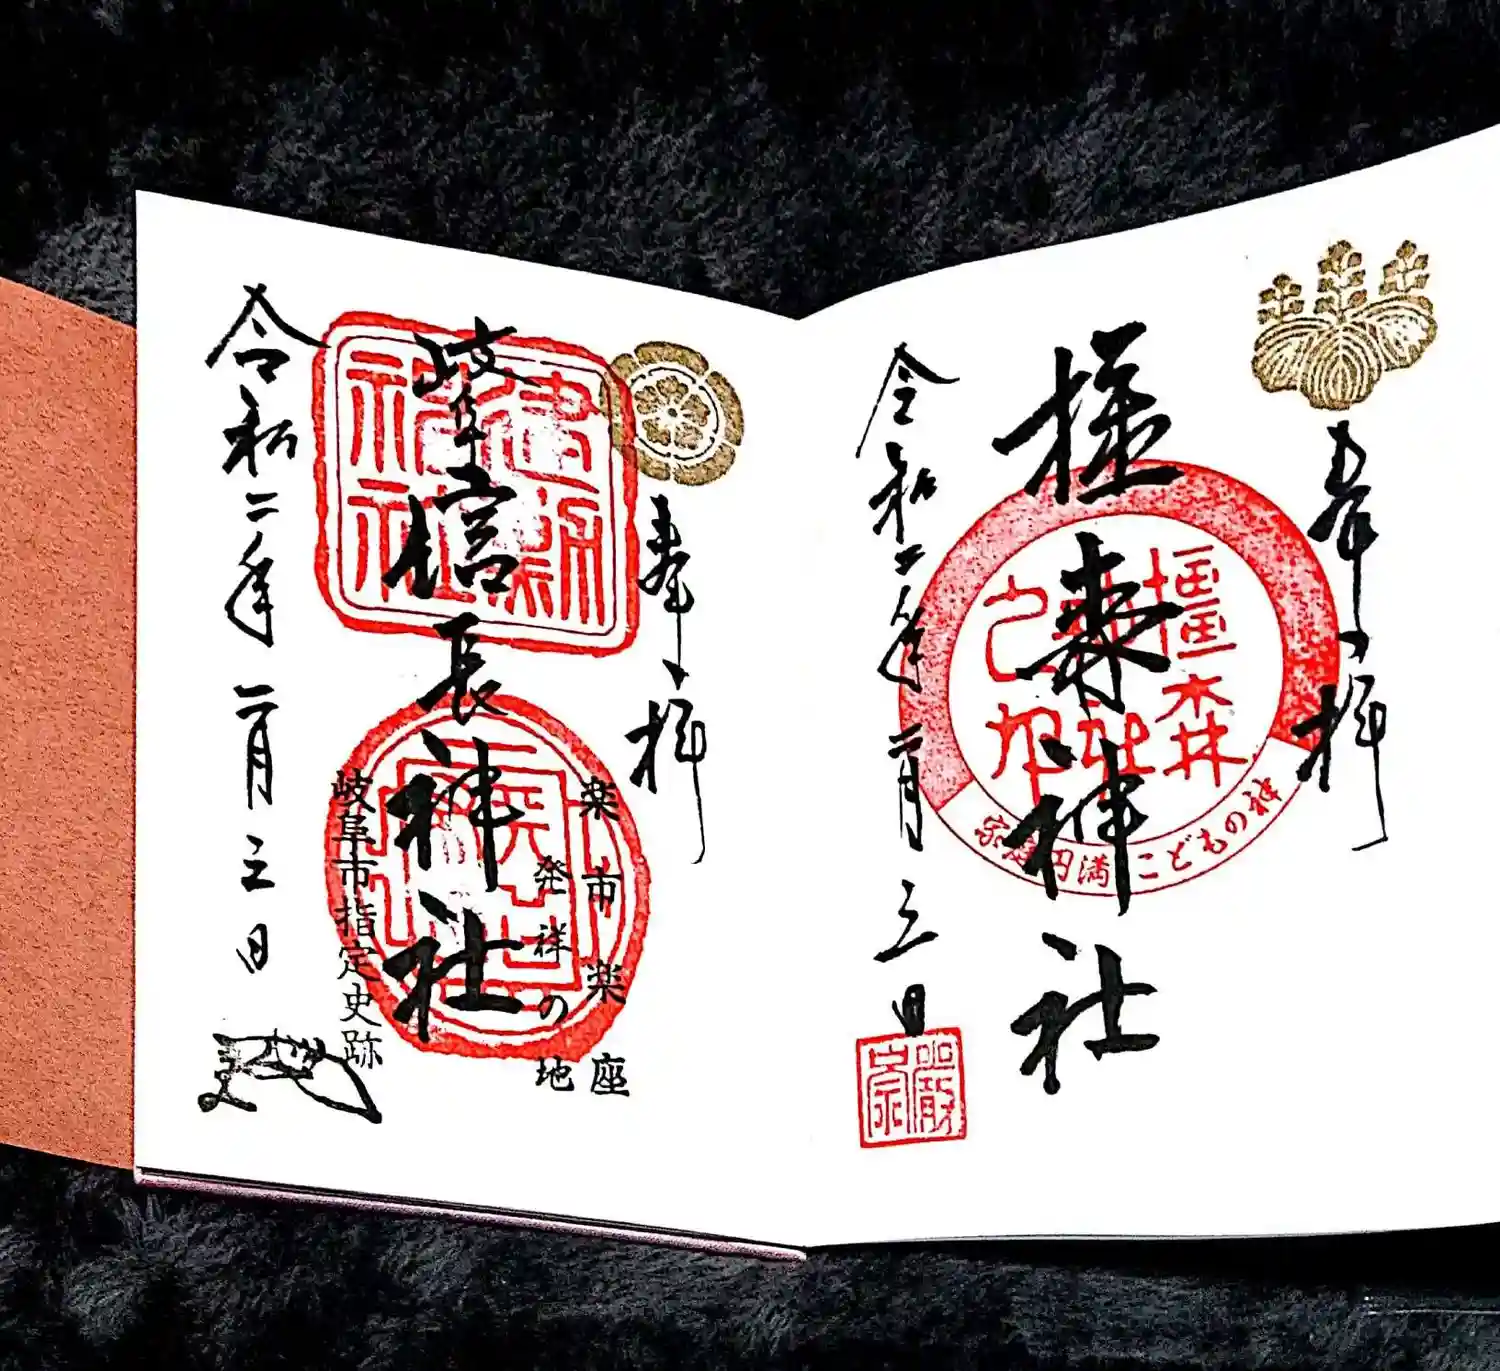 奉拝
橿森神社
橿森
神社
之印
家庭円満 こどもの神
令和二年一月三日
奉拝
岐阜信長神社
建勲
神社
楽市楽座
発祥の地
岐阜市指定史跡
令和二年一月三日